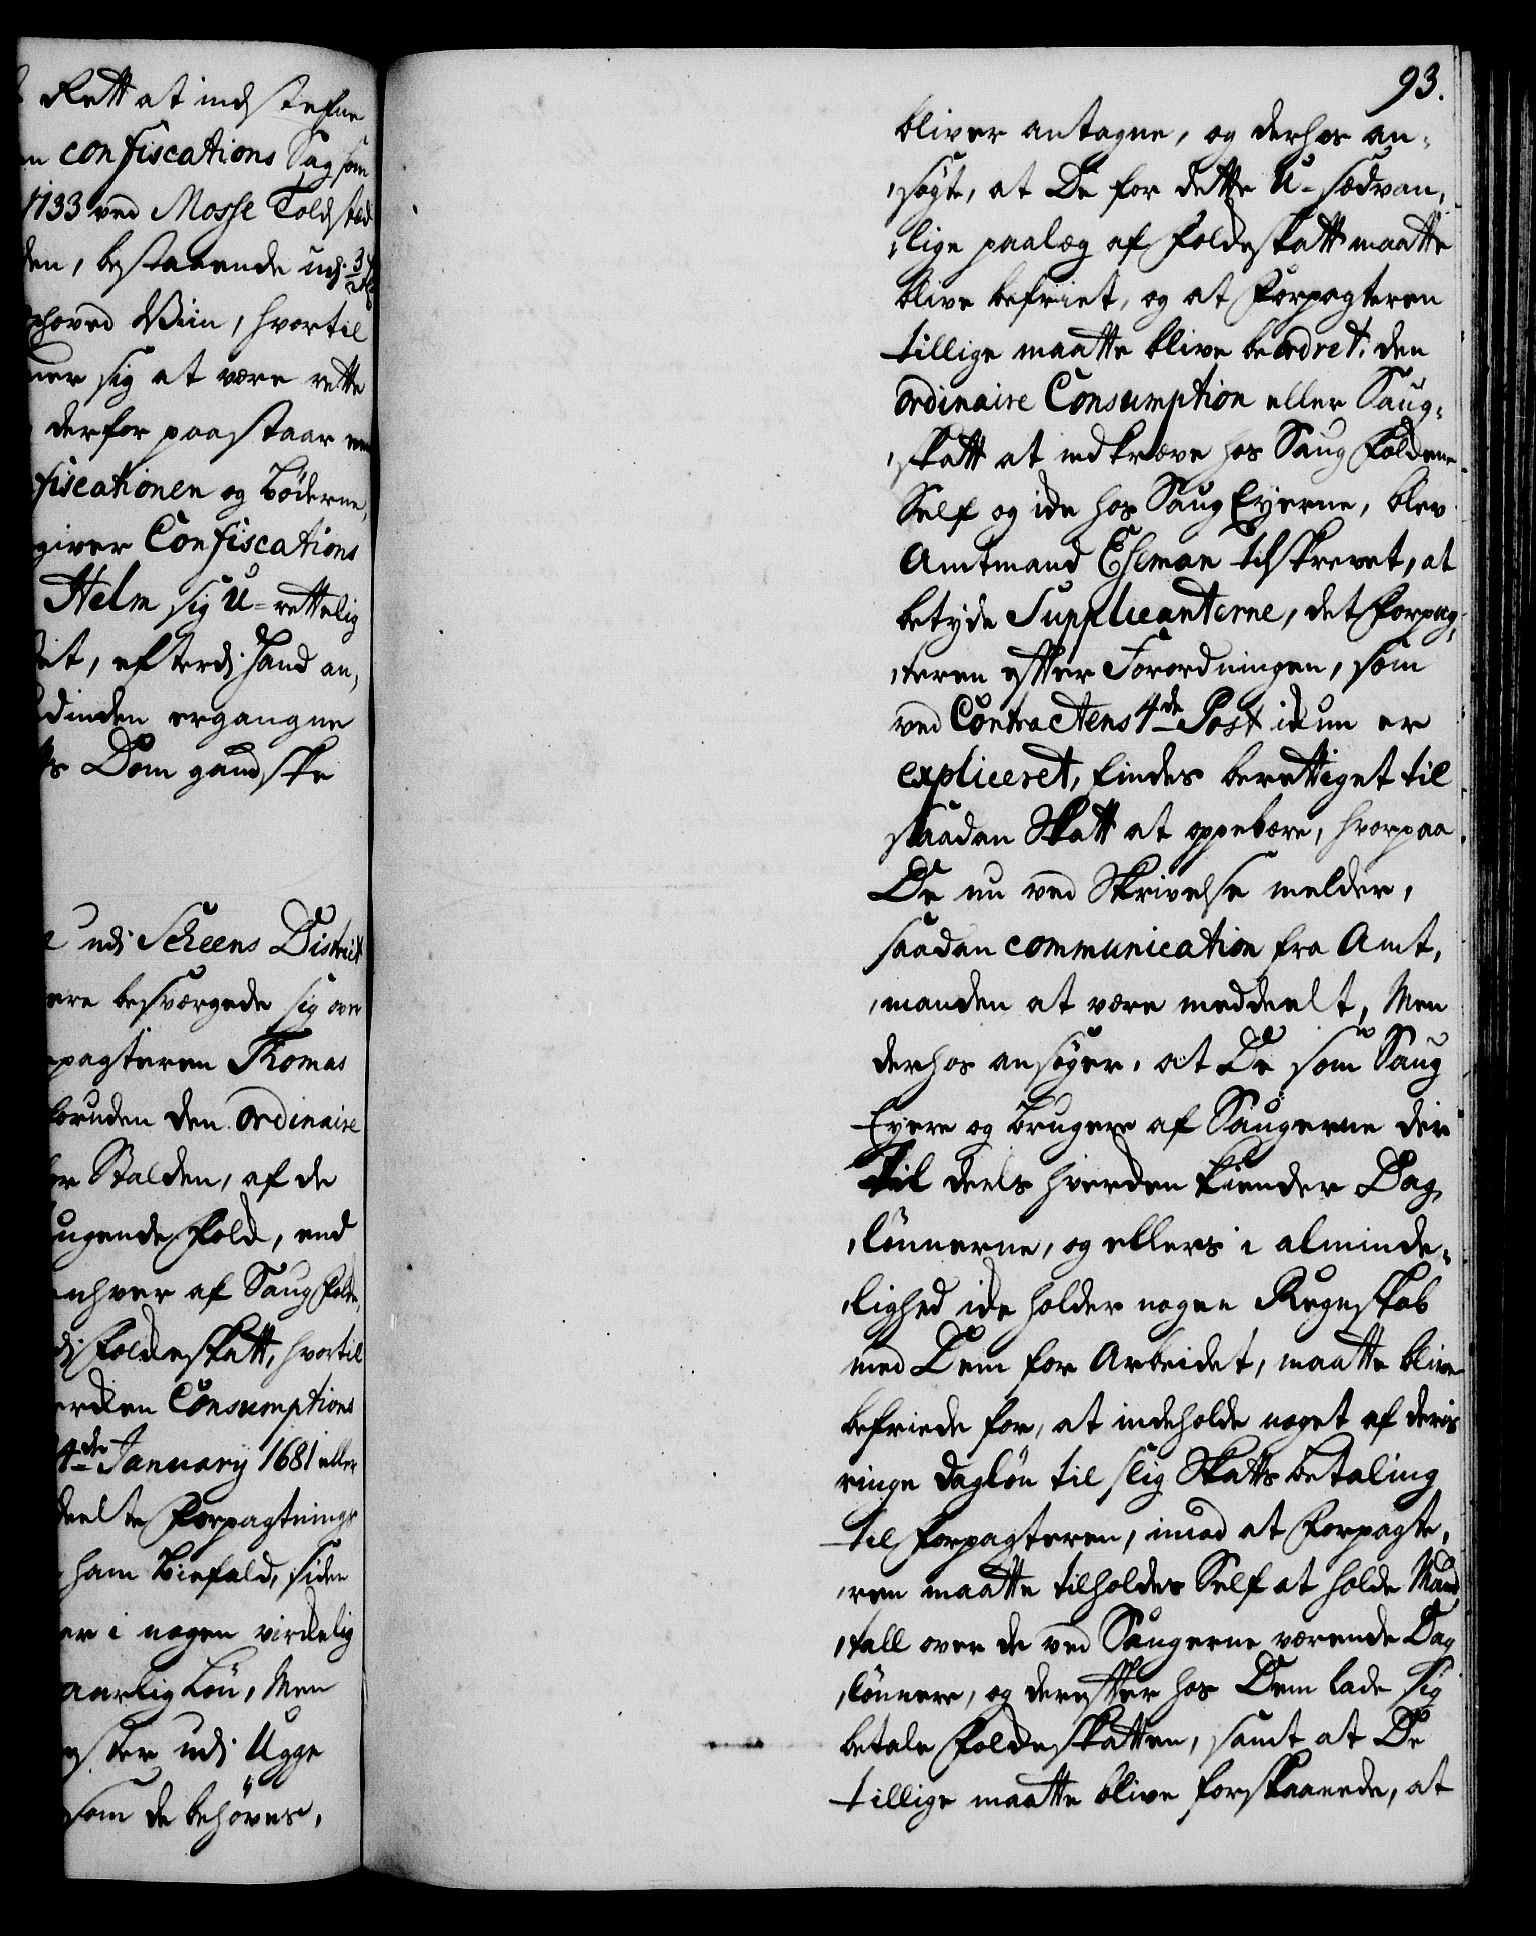 Rett at indstefne
confiscations Sag som
1733 ved Mosse Toldstæd
den, bestaaende udj 34
hoved Viin, hvortil
ner sig at være rette
derfor paastaar
fiscationen og Böderne,
giver Confiscations
Helm sig U-rettelig
et, efterdj Hand an,
dinden ergangne
Dom gandske
udj Scheens District
ere besværgede sig over
pagteren Thomas
foruden den Ordinaire
Stalden, af de
ugende Folk, end
enhver af Saug Folke,
dj Folkeskatt, hvortil
Consumptions
4de January 1681 eller
deelte Forpagtnings
ham Biefald, siden
er i nogen virkelig
aarlig Lön, Men
udj Ugge
som de behöves,
93.
bliver antagne, og derhos an-
söyte, at De for dette U-sædvan,
lige paalæg af Folkeskatt maatte
blive befriet, og at Forpagteren
tillige maatte blive beordret, den
Ordinaire Consumption eller Saug-
skatt at indkræve hos Saug Folkene
Self og icke hos Saug Eyerne, blev
Amtmand Ehlman tilskrevet, at
betyde Supplicanterne, det Forpag,
teren efter Forordningen, som
ved Contractens 4de Post ickun er
expliceret, findes berettiget til
saadan Skatt at oppebære, hvorpaa
De nu ved Skrivelse melder,
saadan communication fra Amt,
manden at være meddeelt, Men
derhos ansöger, at De som Saug
Eyere og Brugere af Saugerne der
til deels hverken kiender Dag,
lönnerne, og ellers i alminde-
lighed icke holder nogen Regnskab
med Dem for Arbeidet, maatte blive
befriede for, at indeholde noget af deris
ringe Daglön til slig Skatts betaling
til Forpagteren, imod at Forpagte,
ren maatte tilholdes Self at holde Mand,
tall over de ved Saugerne værende Dag
lönnere, og derefter hos Dem lade sig
betale Folkeskatten, samt at De
tillige maatte blive forskaanede, at